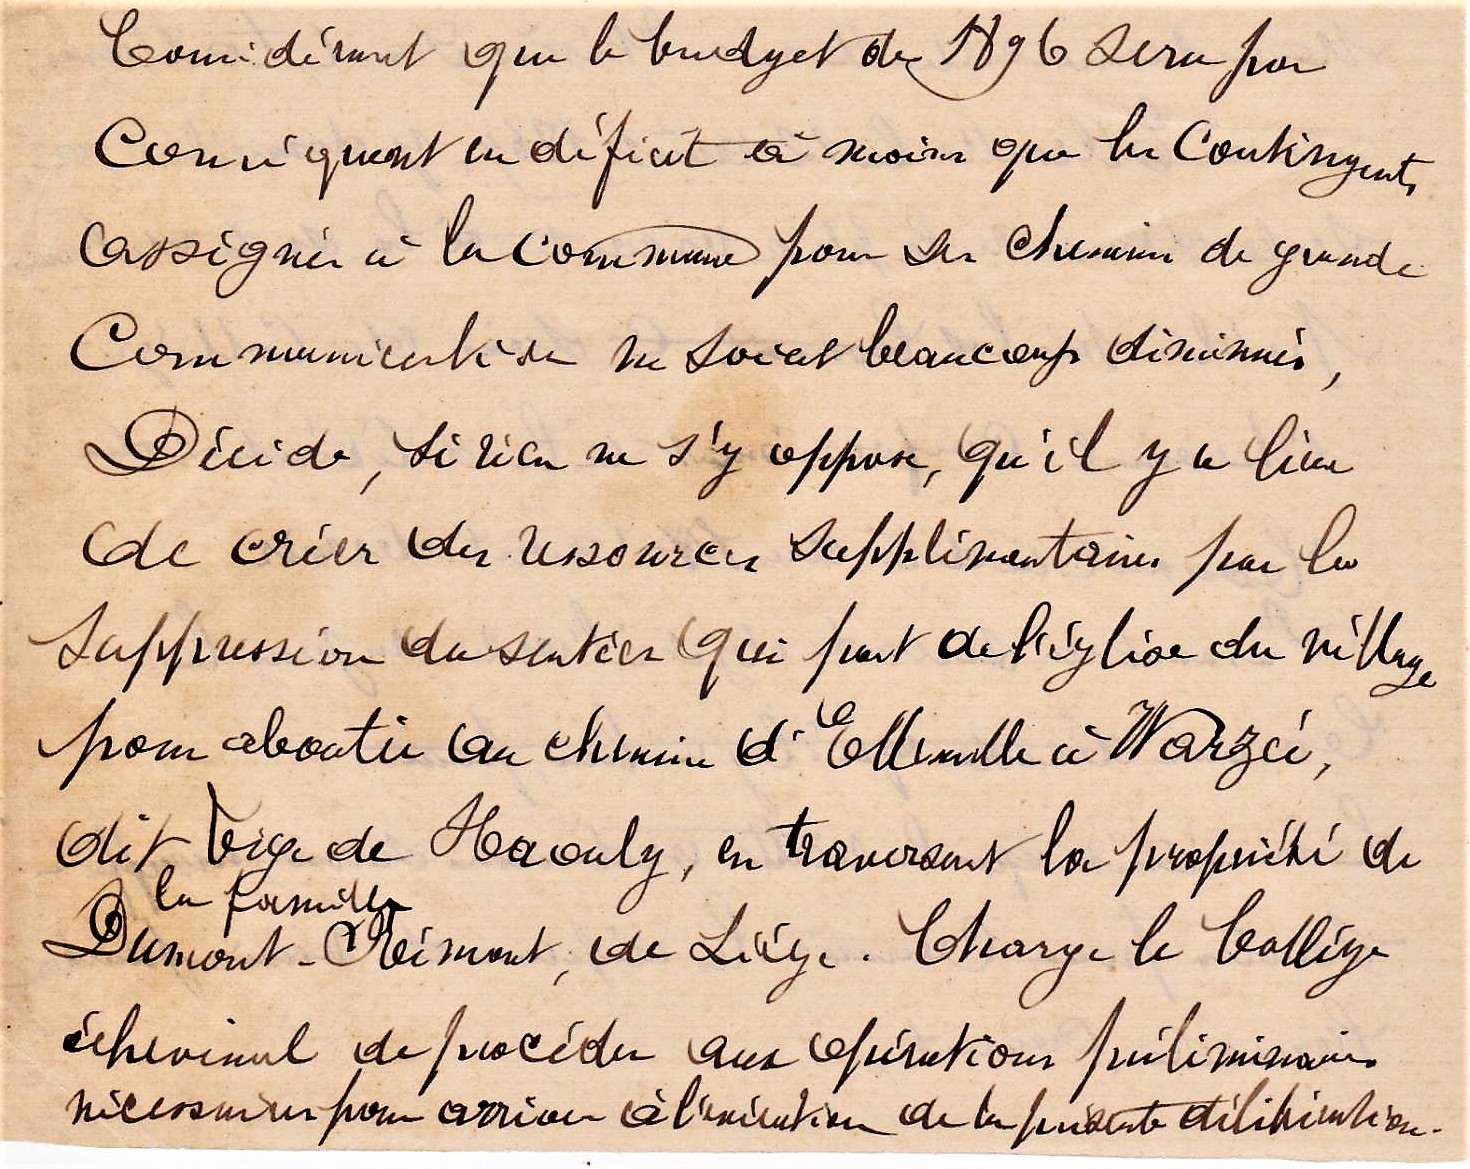 Considérant que le budget de 1896 sera par
conséquent en déficit à moins que les contingents
assignés à la commune pour ses chemins de grande
communication ne soient beaucoup diminués,
Décide, si rien ne s'y oppose, qu'il y a lieu
de créer des ressources supplémentaires par la
suppression du sentier qui part de l'église du village
pour aboutir au chemin d'Ellemelle à Warzée,
dit Vige de Haouly, en traversant la propriété de
la famille
Dumont-Rémont, de Liège. Charge le Collège
échevinal de procéder aux opérations préliminaires
nécessaires pour arriver à l'exécution de la présente délibération.